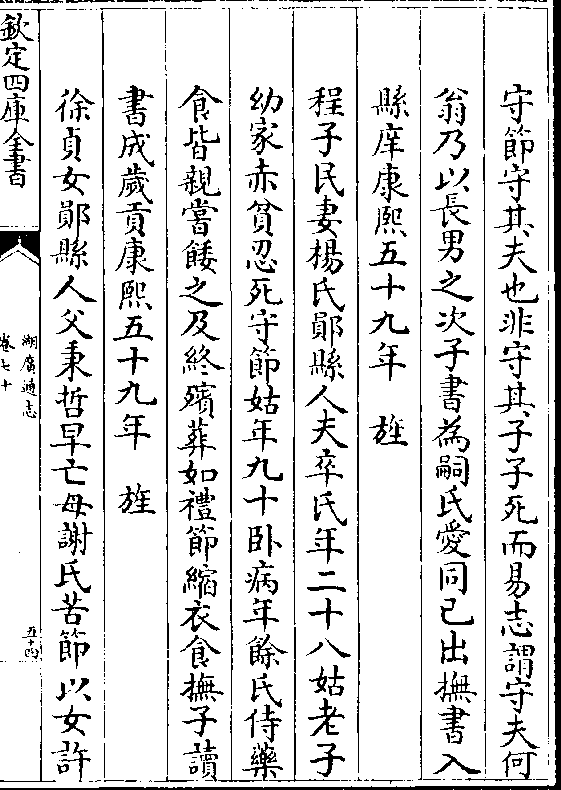 守節守其夫也非守其子子死而易志謂守夫何
翁乃以長男之次子書為嗣氏愛同已出撫書入
縣庠康熙五十九年 旌
程子民妻楊氏鄖縣人夫卒氏年二十八姑老子
幼家赤貧忍死守節姑年九十卧病年餘氏侍藥
食皆親嘗餧之及終殯葬如禮節縮衣食撫子讀
書成歲貢康熙五十九年 旌
徐貞女鄖縣人父秉哲早亡母謝氏苦節以女許
欽定四庫全書
湖廣通志
卷七十
五十四